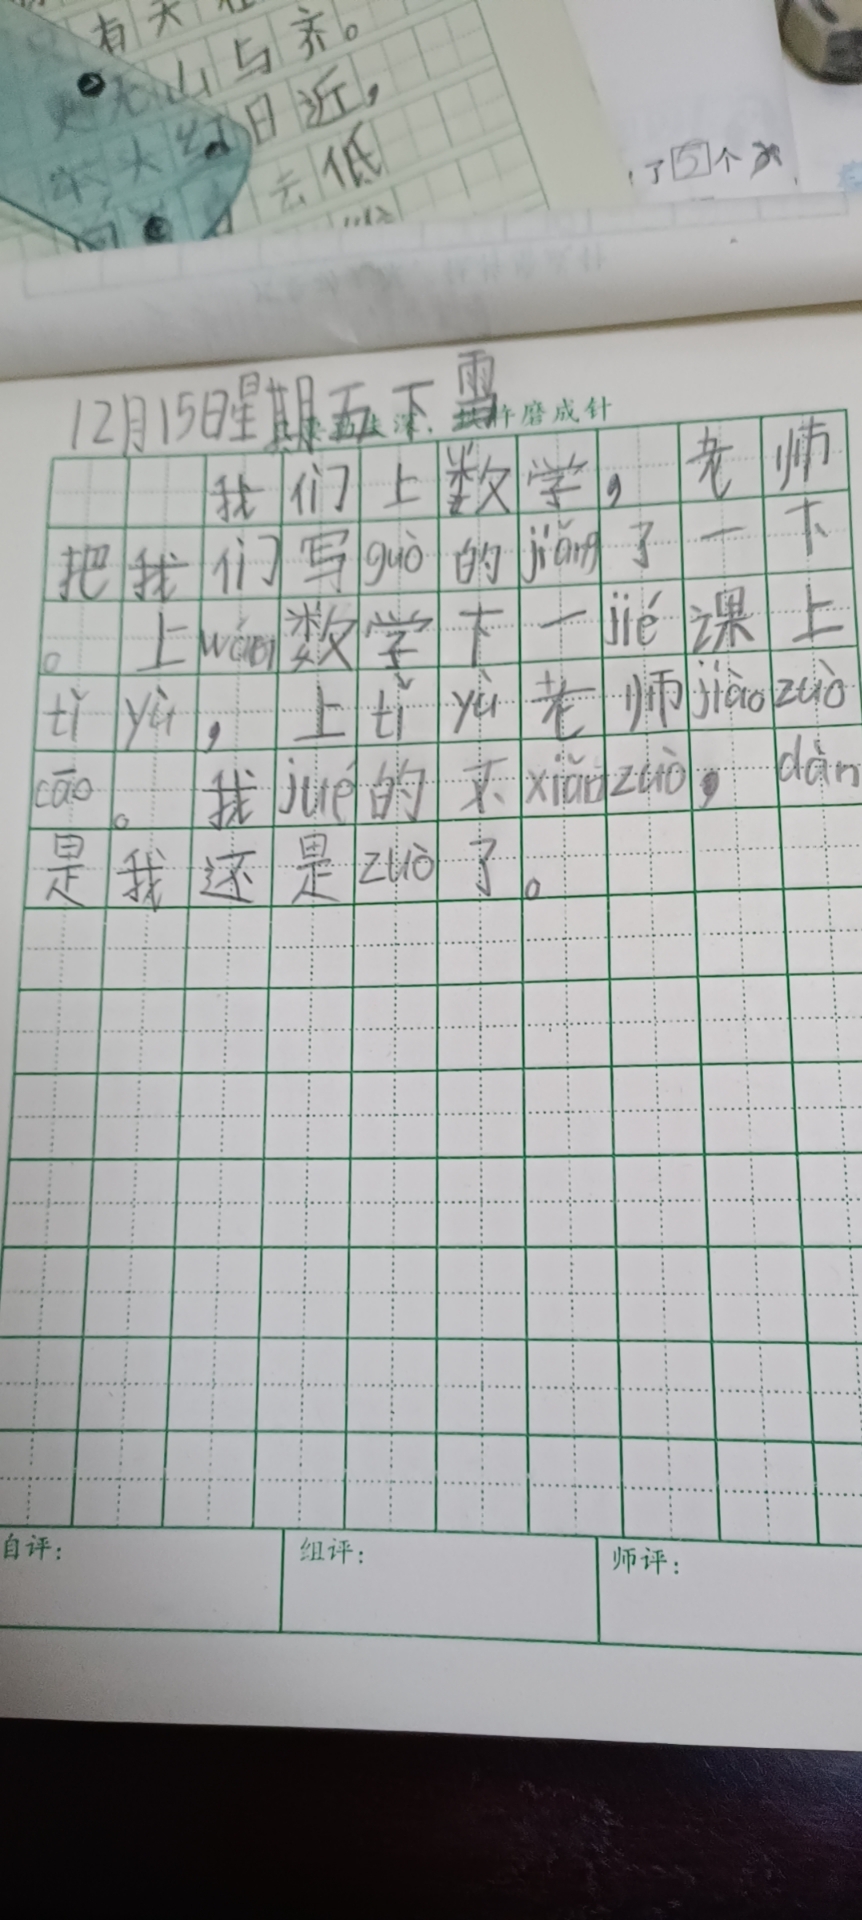 有天在
山与齐。
日近，
去低
了5个
12月15日星期五下雪
磨成针
我们上数学，老师
把我们写guò的jiǎng了一下
。上wán数学下一jié课上
tǐ yù，上tǐ yù老师jiào zuò
cāo。我jué的不xiǎn zuò，dàn
是我还是zuò了。
自评：
组评：
师评：